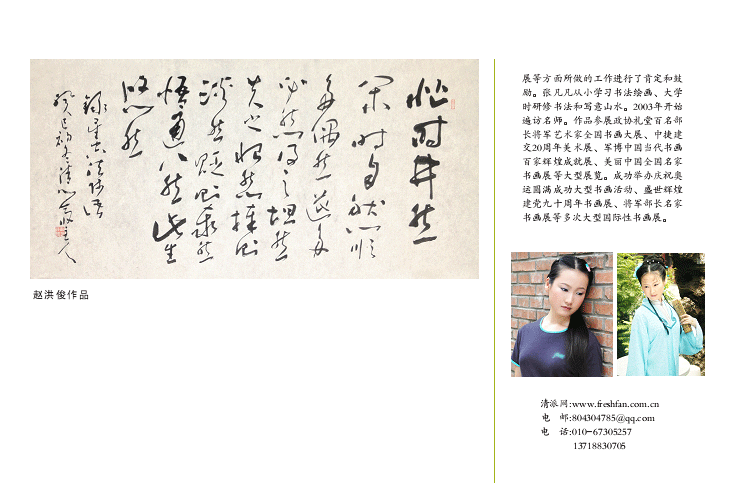 忙时井然
闲时自然顺
多偶然逆多
必然得之坦然
失之怡然捧则
淡然贬则泰然
悟通八然此生
悠然
录星云法师语
癸巳初冬清心斋主人
赵洪俊作品
展等方面所做的工作进行了肯定和鼓
励。张凡凡从小学习书法绘画、大学
时研修书法和写意山水。2003年开始
遍访名师。作品参展政协礼堂百名部
长将军艺术家全国书画大展、中捷建
交20周年美术展、军博中国当代书画
百家辉煌成就展、美丽中国全国名家
书画展等大型展览。成功举办庆祝奥
运圆满成功大型书画活动、盛世辉煌
建党九十周年书画展、将军部长名家
书画展等多次大型国际性书画展。
清派网:www.freshfan.com.cn
电　邮:804304785@qq.com
电　话:010-67305257
13718830705